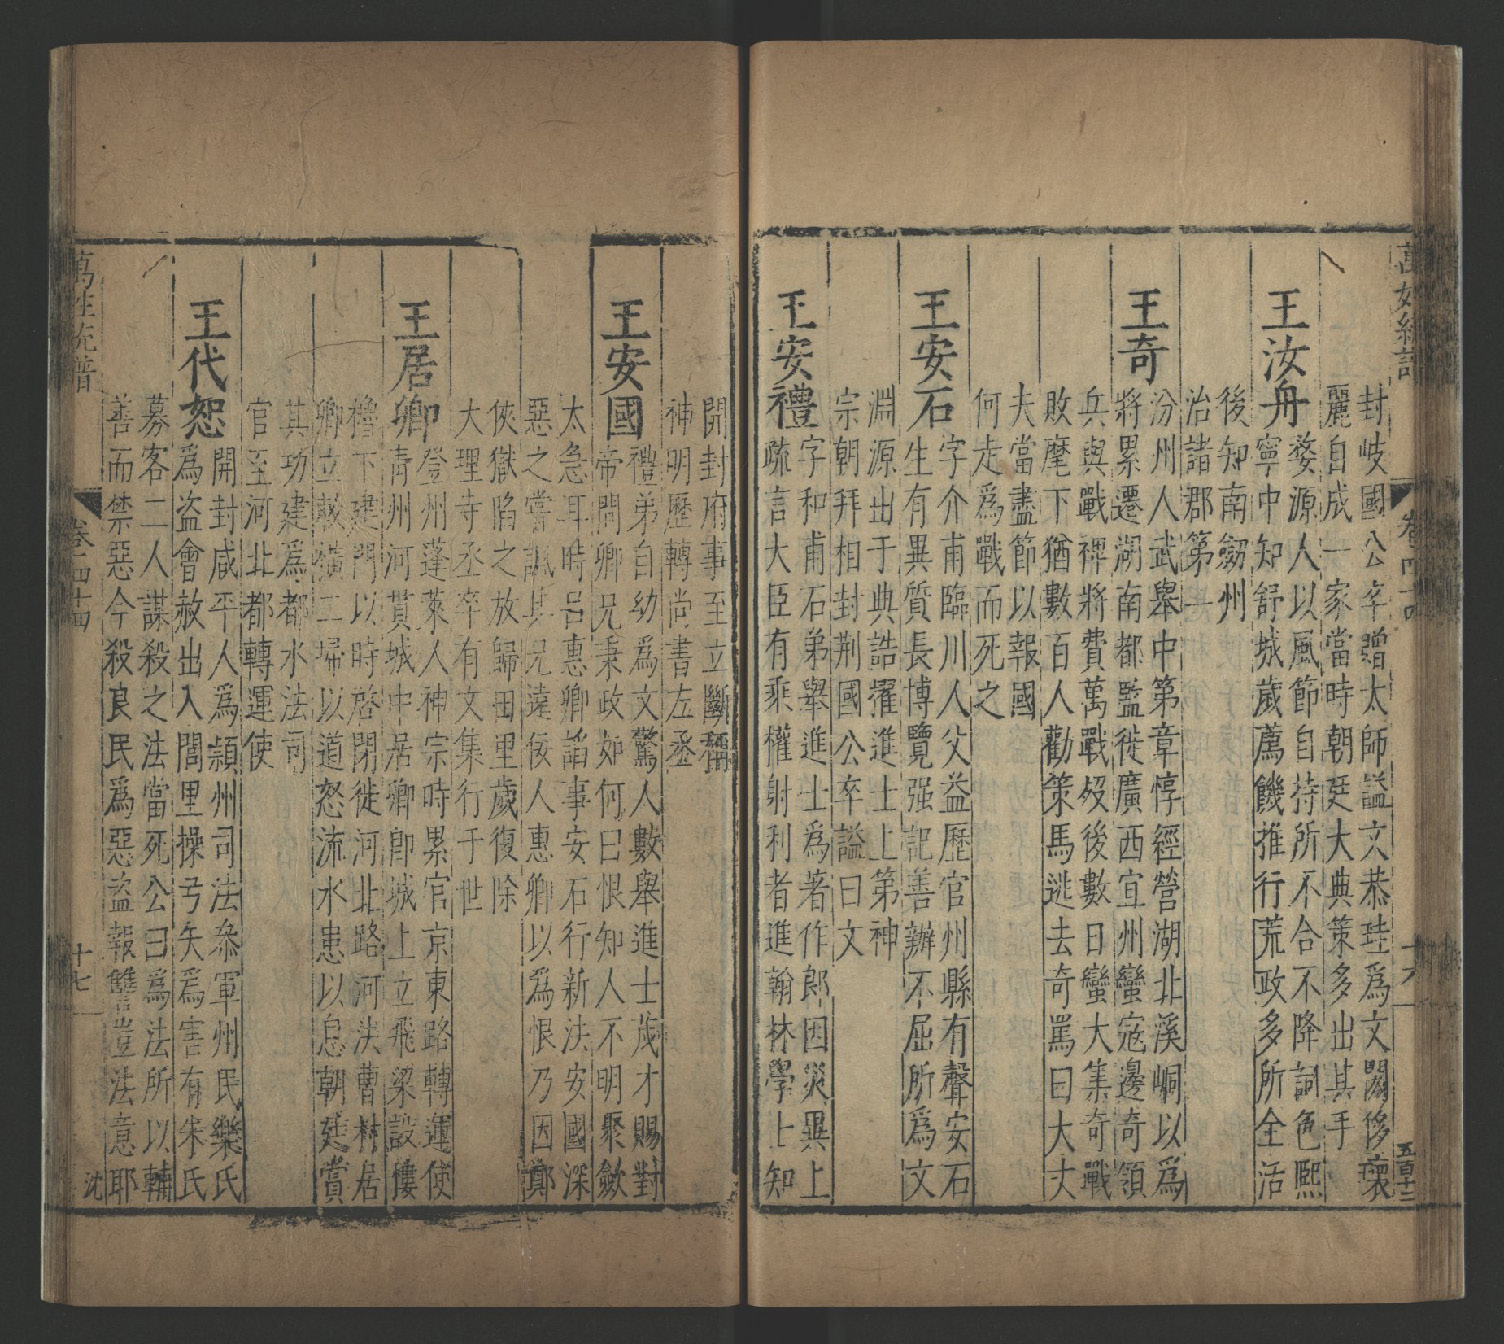 封岐國公卒贈太師謚文恭珪爲文閎侈瓌
麗自成一家當時朝廷大典策多出其手
王汝舟
婺源人以風節自持所不合不降詞色熙
寧中知舒城歲薦饑推行荒政多所全活
後知南劒州
治諸郡第一
王奇
汾州人武舉中第章惇經營湖北溪峒以爲
將累遷湖南都監徙廣西宜州蠻寇邊奇領
兵與戰裨將費萬戰歿後數日蠻大集奇戰
敗麾下猶數百人勸策馬逃去奇罵曰大丈
夫當盡節以報國
何走爲戰而死之
王安石
字介甫臨川人父益歷官州縣有聲安石
生有異質長博覽强記善辦不屈所爲文
淵源出于典誥擢進士上第神
宗朝拜相封荆國公卒謚曰文
王安禮
字和甫石弟舉進士爲著作郎因災異上
疏言大臣有乘權射利者進翰林學士知
開封府事至立斷稱
神明歷轉尚書左丞
王安國
禮弟自幼爲文驚人數舉進士茂才賜對
帝問卿兄秉政如何曰恨知人不明聚歛
太急耳時呂惠卿諂事安石行新法安國深
惡之嘗諷其兄遠佞人惠卿以爲恨乃因鄭
俠獄陷之放歸田里歲復除
大理寺丞卒有文集行于世
王居卿
登州蓬萊人神宗時累官京東路轉運使
青州河貫城中居卿卽城上立飛梁設樓
櫓下建門以時啓閉徙河北路河決曹村居
卿立軟橫二埽以遏怒流水患以息朝廷賞
其功建爲都水法司
官至河北都轉運使
王代恕
開封咸平人爲頴州司法叅軍州民樂氏
爲盜會赦出入閭里操弓矢爲害有朱氏
募客二人謀殺之法當死公曰爲法所以輔
善而禁惡今殺良民爲惡盜報讐豈法意耶
萬姓統譜
卷一四十四
十七
沈